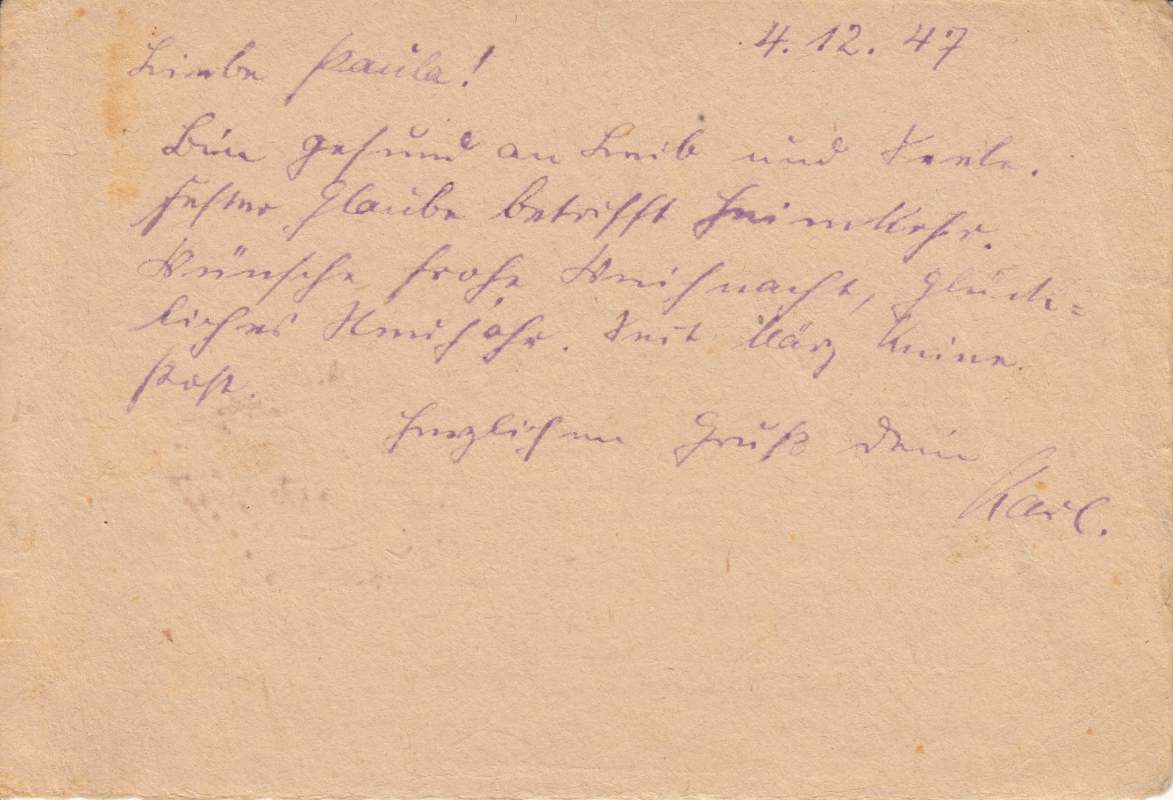 4.12.47
Liebe Paula!
Bin gesund an Leib und Seele.
Fester Glaube betrifft Heimkehr.
Wünsche frohe Weihnacht, Glück=
liches Neujahr. Seit März keine
Post.
Herzlichen Gruß Dein
Karl.